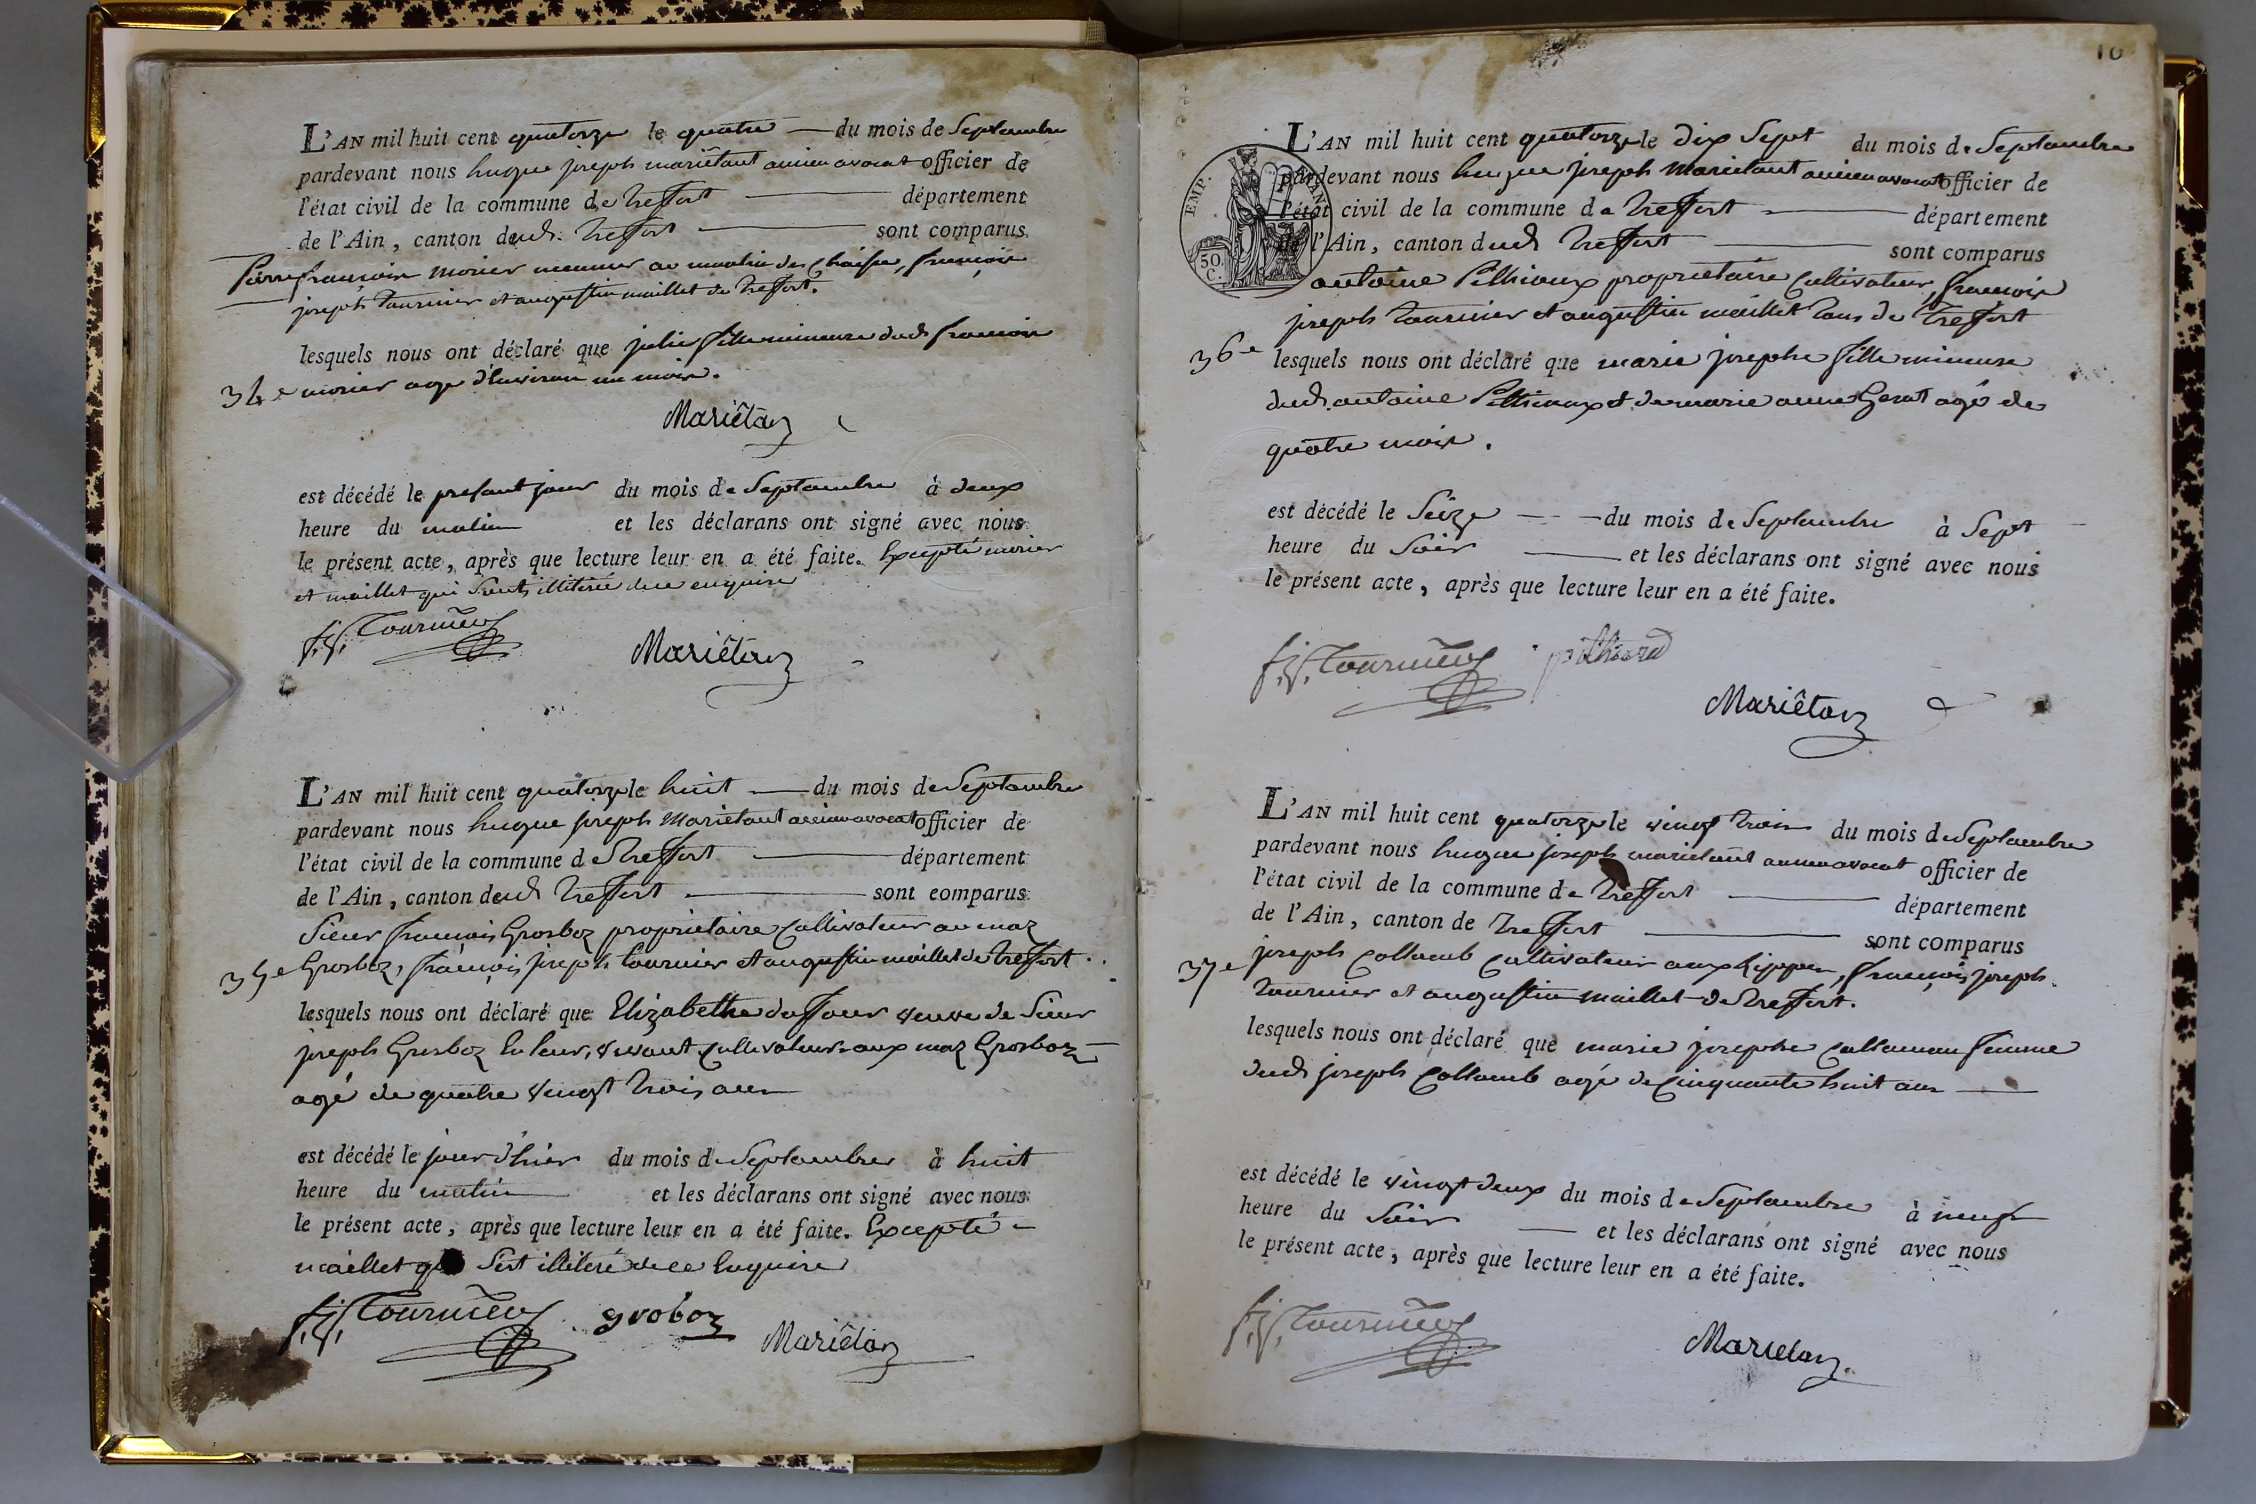 L'AN mil huit cent quatorze le quatre du mois de Septambre
pardevant nous hugue joseph mariétant ancien avocat officier de
l'état civil de la commune de Treffort département
de l'Ain, canton dud. Treffort sont comparus
Pierre françois morier meunier au moulin des Chaise, françois
joseph Tournier et augustin maillet de Treffort.
lesquels nous ont déclaré que julie fille mineure dud françois
34e morier age d'Environ un moix.
Mariétan
est décédé le presant jour du mois de Septambre à deux
heure du matin et les déclarans ont signé avec nous
le présent acte, après que lecture leur en a été faite. Excepté morier
et maillet qui Sont illitéré de ce enquire
f.j. Tournier
Mariétan
L'AN mil huit cent quatorze le huit du mois de Septambre
pardevant nous hugue joseph Mariétant ancien avocat officier de
l'état civil de la commune de Treffort département
de l'Ain, canton dud Treffort sont comparus
Sieur françois Grosboz proprietaire Cultivateur au maz
35e Grosboz, françois joseph tournier et augustin maillet de Treffort.
lesquels nous ont déclaré que Elizabethe duffour veuve de Sieur
joseph Grosboz En Son vivant Cultivateur aux maz Grosboz
agé de quatre vingt trois ans
est décédé le jour d'hier du mois de Septambre à huit
heure du matin et les déclarans ont signé avec nous
le présent acte, après que lecture leur en a été faite. Excepté
maillet qui Sest illiteré de ce Enquire
f.j. Tournier groboz Mariétan
10
EMP.
50 C.
L'AN mil huit cent quatorze le dix Sept du mois de Septambre
pardevant nous hugue joseph Mariétant ancien avocat officier de
l'état civil de la commune de Treffort département
de l'Ain, canton dud Treffort sont comparus
antoine Pillioux proprietaire Cultivateur, françois
joseph tournier et augustin maillet tous de Treffort
36e lesquels nous ont déclaré que marie josephe fille mineure
dud. antoine Pillioux et de marie anne Gerat agé de
quatre moix.
est décédé le Seize du mois de Septambre à Sept
heure du Soir et les déclarans ont signé avec nous
le présent acte, après que lecture leur en a été faite.
f.j. Tournier
Mariétan
L'AN mil huit cent quatorze le vingt trois du mois de Septambre
pardevant nous hugue joseph mariétant ancien avocat officier de
l'état civil de la commune de Treffort département
de l'Ain, canton de Treffort sont comparus
37e joseph Collomb Cultivateur aux Rippes, françois joseph
tournier et augustin maillet de Treffort.
lesquels nous ont déclaré que marie josephe femme
dud joseph Collomb agé de Cinquante huit ans
est décédé le vingt deux du mois de Septambre à neuf
heure du Soir et les déclarans ont signé avec nous
le présent acte, après que lecture leur en a été faite.
f.j. Tournier
Mariétan